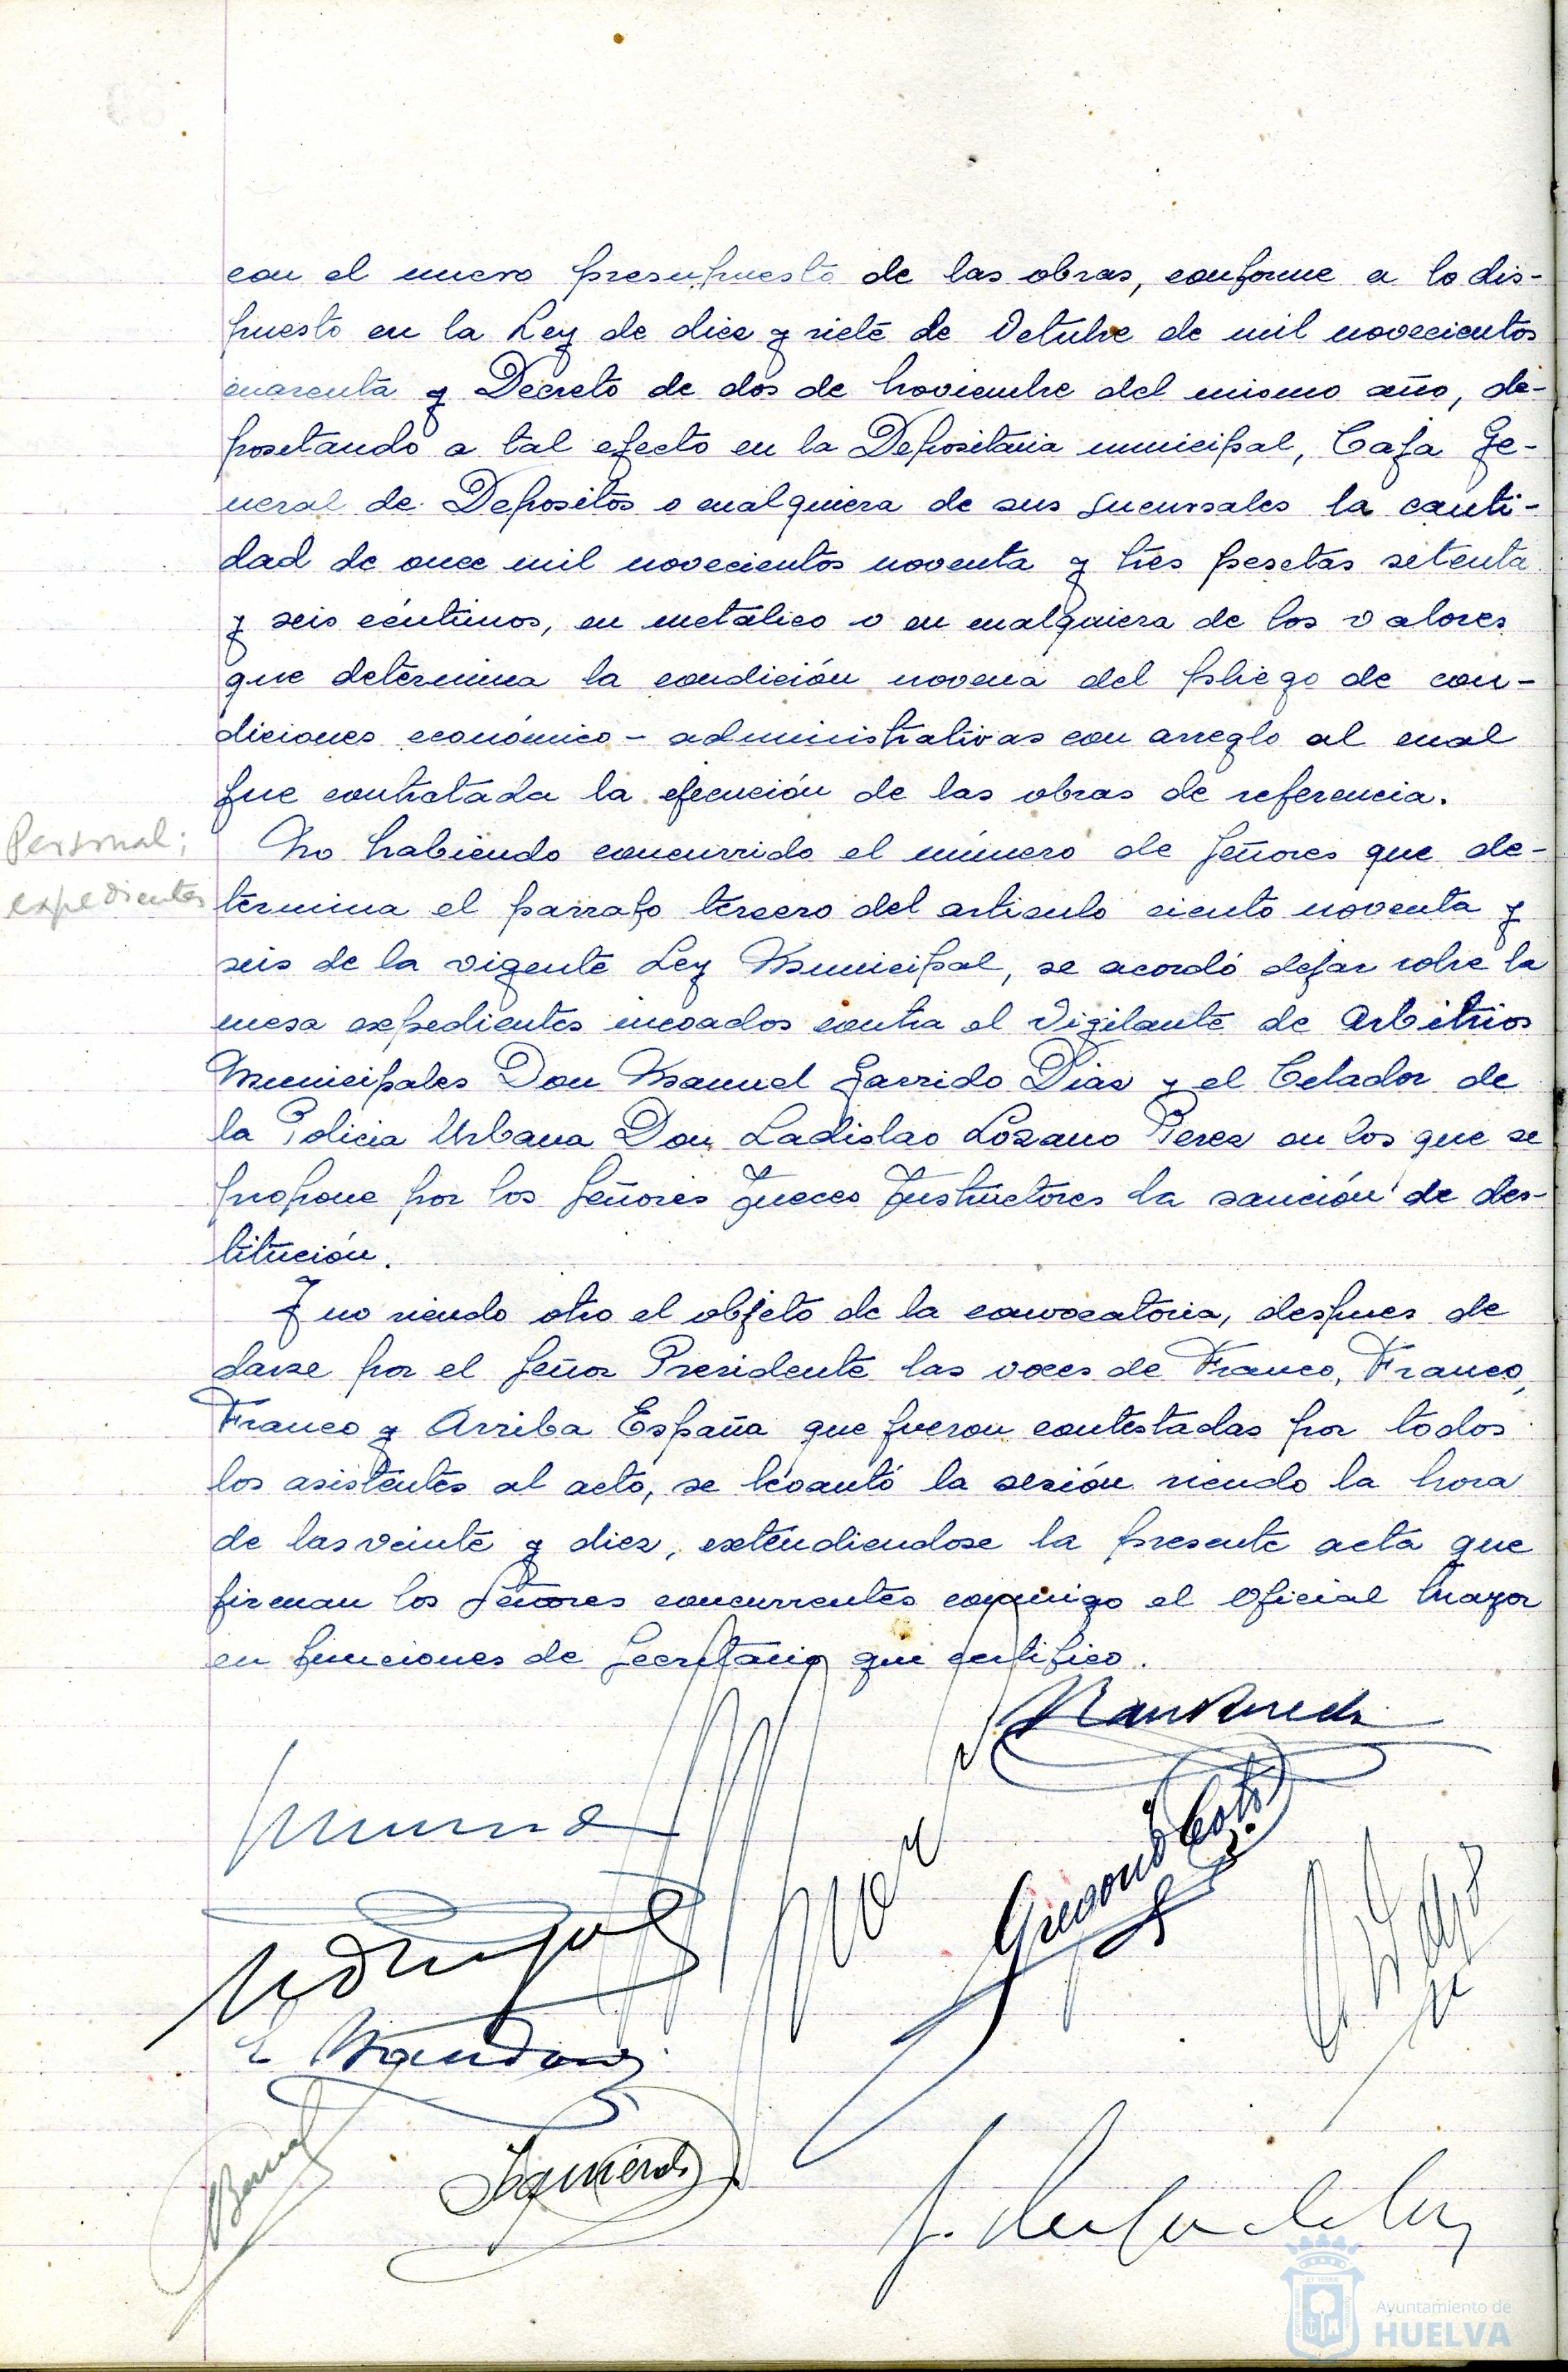 con el nuevo presupuesto de las obras, conforme a lo dis-
puesto en la Ley de diez y siete de Octubre de mil novecientos
cuarenta y Decreto de dos de Noviembre del mismo año, de-
positando a tal efecto en la Depositaria municipal, Caja Ge-
neral de Depositos o cualquiera de sus Sucursales la canti-
dad de once mil novecientos noventa y tres pesetas setenta
y seis céntimos, en metálico o en cualquiera de los valores
que determina la condición novena del pliego de con-
diciones económico-administrativas con arreglo al cual
fue contratada la ejecución de las obras de referencia.
Personal;
expedientes
No habiendo concurrido el número de Señores que de-
termina el parrafo tercero del articulo ciento noventa y
seis de la vigente Ley Municipal, se acordó dejar sobre la
mesa expedientes incoados contra el Vigilante de Arbitrios
Municipales Don Manuel Garrido Dias y el Celador de
la Policia Urbana Don Ladislao Lozano Perez en los que se
propone por los Señores Jueces Instructores la sanción de des-
titución.
Y no siendo otro el objeto de la convocatoria, despues de
darse por el Señor Presidente las voces de Franco, Franco,
Franco y Arriba España que fueron contestadas por todos
los asistentes al acto, se levantó la sesión siendo la hora
de las veinte y diez, exténdiendose la presente acta que
firman los Señores concurrentes conmigo el Oficial Mayor
en funciones de Secretario que certifico.
Gregorio Coto
Izquierdo
Ayuntamiento de
HUELVA